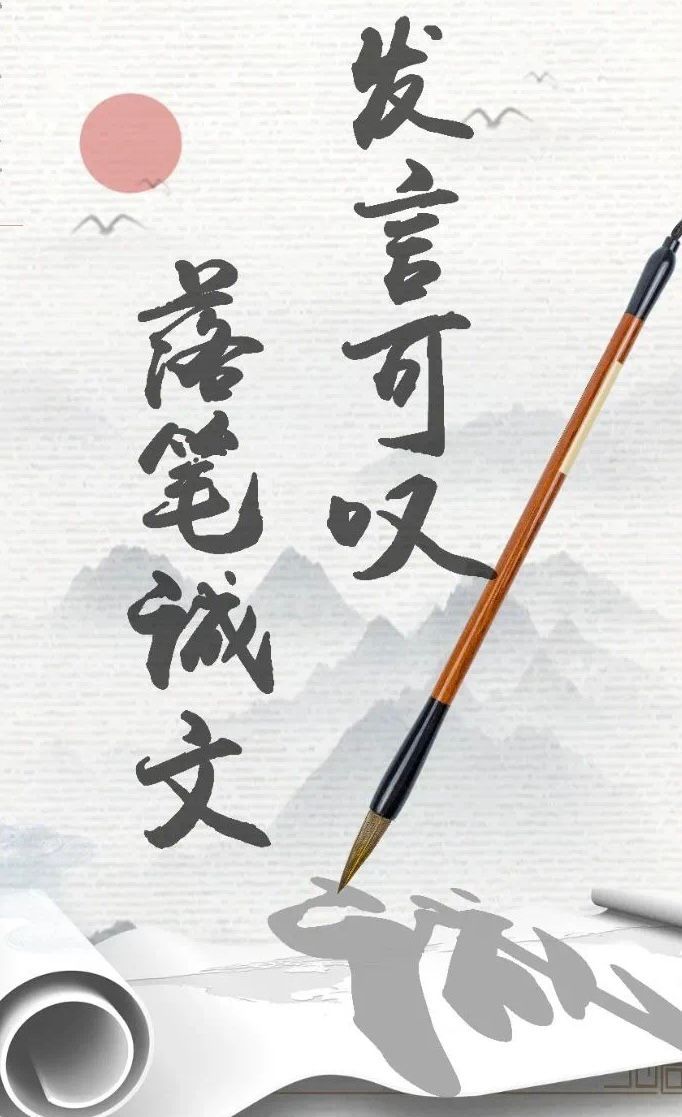 发言可叹
落笔诚文
诚